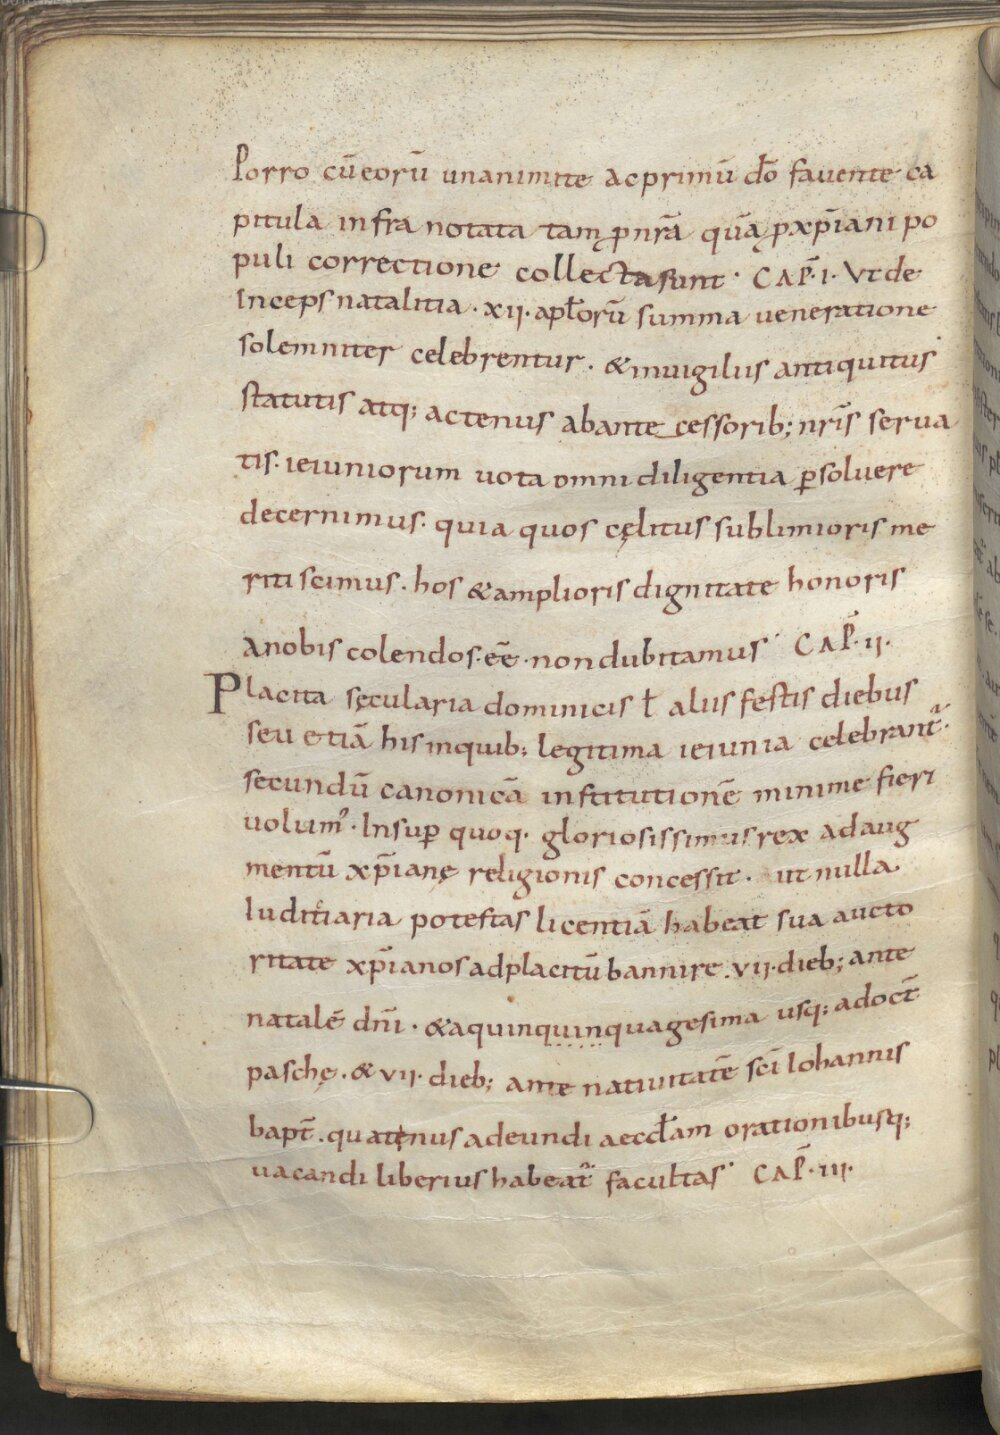 Porro cū eorū unanimite ac primū dō fauente ca
pitula infra notata tam ꝓ nrā quā ꝓ xp̄iani po
puli correctione collecta sunt · CAP̄ · I · Vt de
inceps natalitia · xii · aptōrū summa ueneratione
solemniter celebrentur · & in uigiliis antiquitus
statutis atq; actenus ab ante cessorib; nrīs serua
tis · ieiuniorum uota omni diligentia ꝑsoluere
decernimus · quia quos cęlitus sublimioris me
riti scimus · hos & amplioris dignitate honoris
a nobis colendos · eē · non dubitamus · CAP̄ · II ·
Placita sęcularia dominicis ł aliis festis diebus
seu etiā his in quib; legitima ieiunia celebrant᷑ ·
secundū canonicā institutionē minime fieri
uolum᾽ · Insuꝑ quoq · gloriosissimus rex ad aug
mentū xp̄ianę religionis concessit · ut nulla
Iuditiaria potestas licentiā habeat sua aucto
ritate xp̄ianos ad placitū bannire · vii · dieb; ante
natalē dnī · & a quinquinquagesima usq; ad oct̄
paschę · & vii · dieb; ante natiuitatē scī Iohannis
bapt̄ · quatenus adeundi aecclam orationibusq;
uacandi liberius habeat᷑ facultas · CAP̄ · III ·